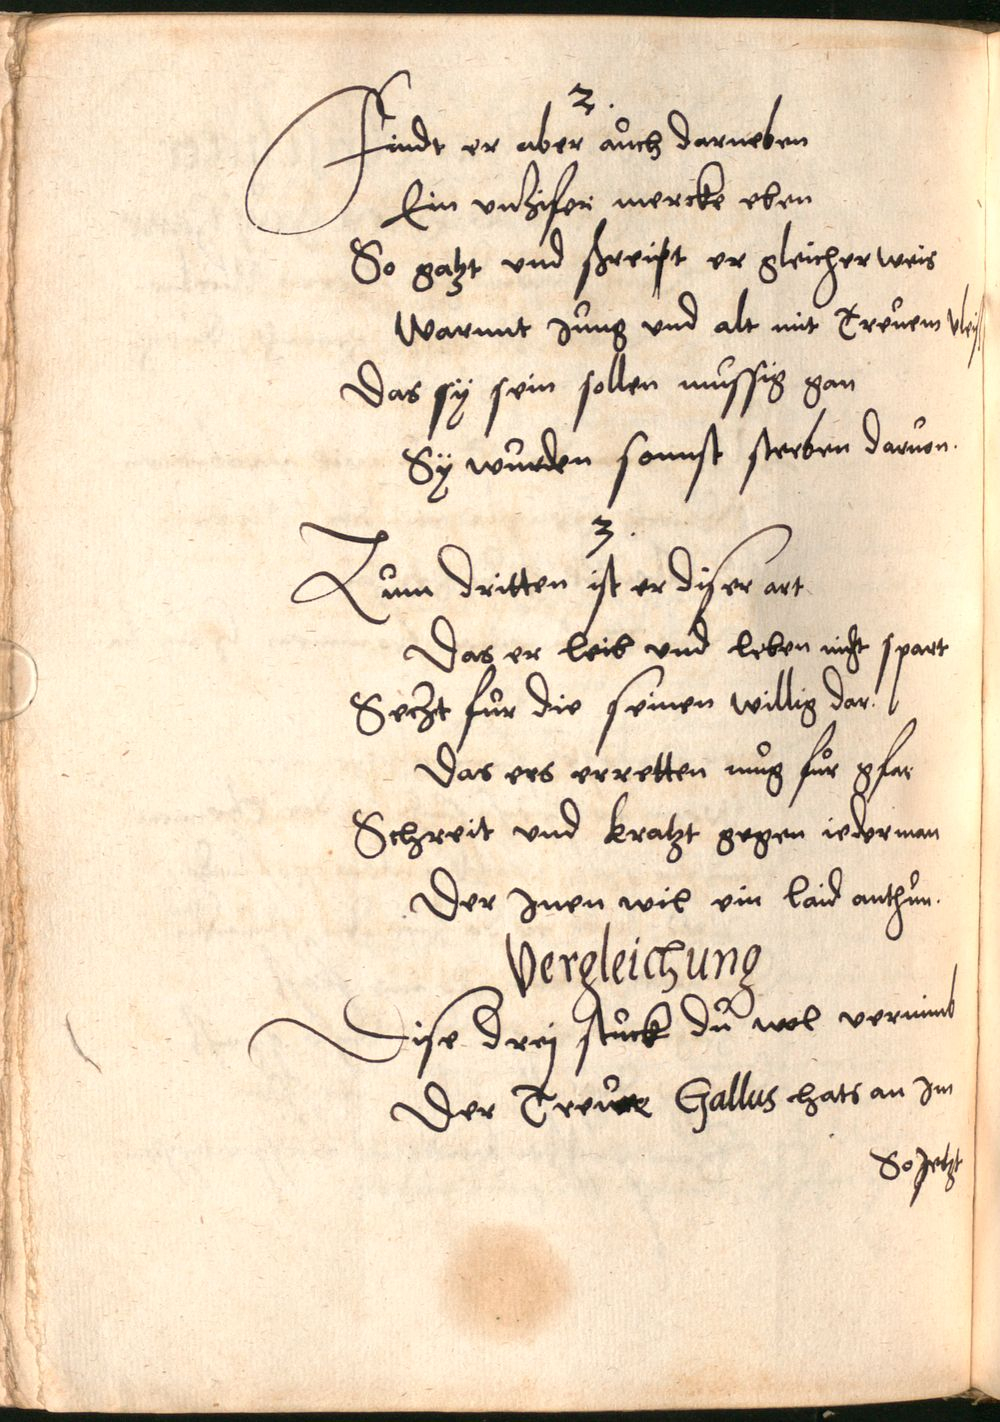 2.
Findt er aber aůch darneben
Ein vnzifer mercke eben
So gatzt vnd schreijt er gleicher weis
Warnnt Jůng vnd alt mit Treůem vleis
Das sÿ sein sollen mussig gan
Sÿ wůrden sonnst sterben daruon.
3.
Zům dritten ist er diser art
Das er leib vnd leben nicht spart
Secht fůr die seinen willig dar.
Das ers erretten můg fůr gfar
Schreit vnd kratzt gegen iederman
Der Jnen wil ein laid anthůn.
Vergleichung
Dise dreÿ stůck dů wol vernimb
Der Treůe Gallus hats an Jm
So Jetzt